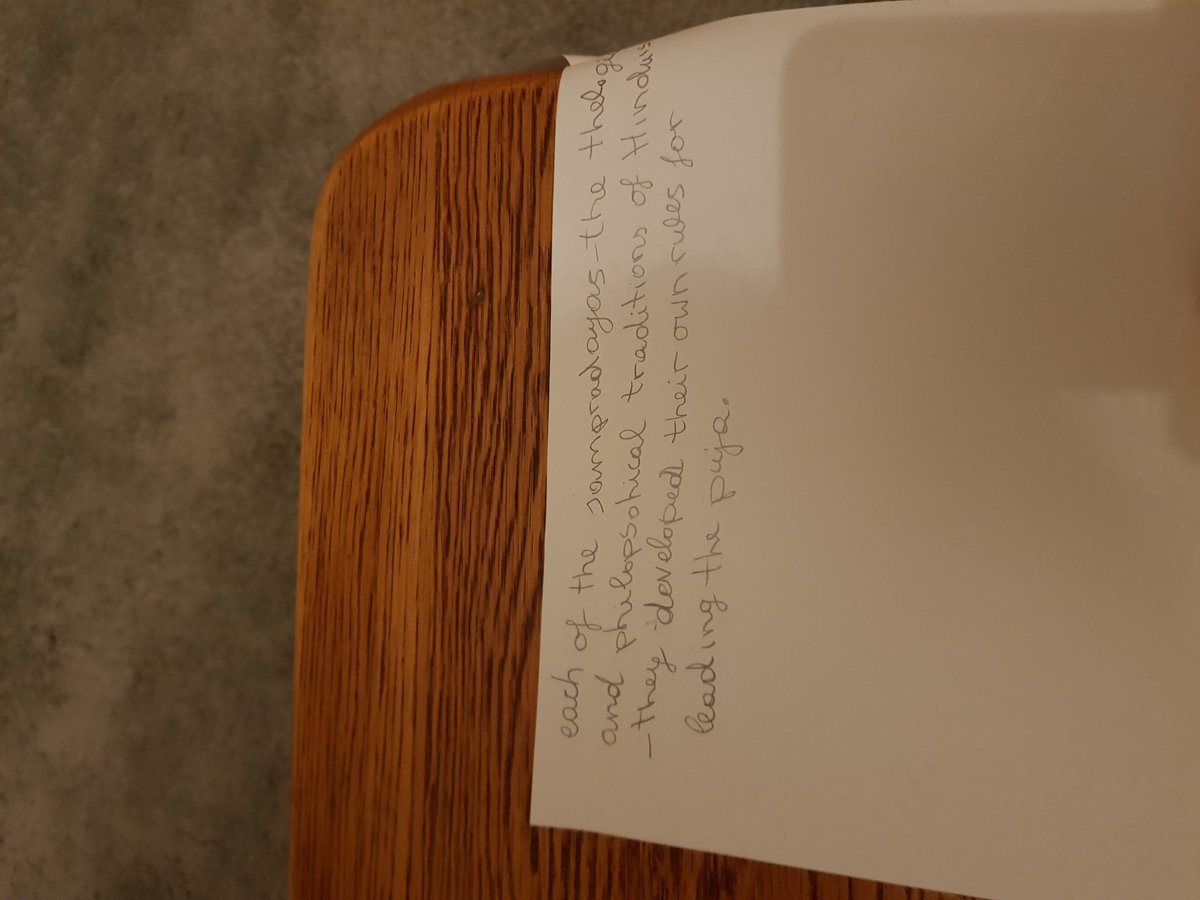 each of the sampradayas - the thelogi
and philopsohical traditions of Hinduis
- they developed their own rules for
leading the puja.